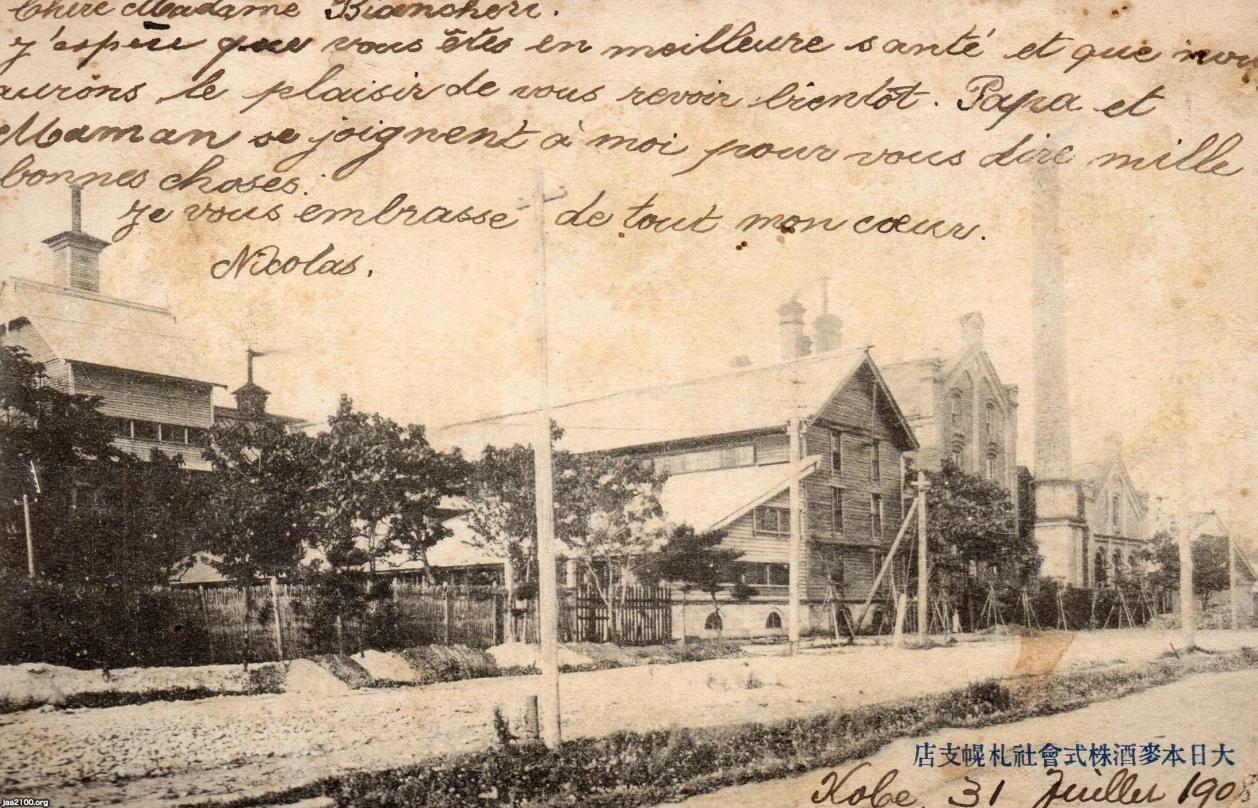 Chère Madame Biancheri.
J'espère que vous êtes en meilleure santé et que nous
aurons le plaisir de vous revoir bientôt. Papa et
Maman se joignent à moi pour vous dire mille
bonnes choses.
Je vous embrasse de tout mon cœur.
Nicolas.
店支幌札社會式株酒麥本日大
Kobe, 31 Juillet
jaa2100.org